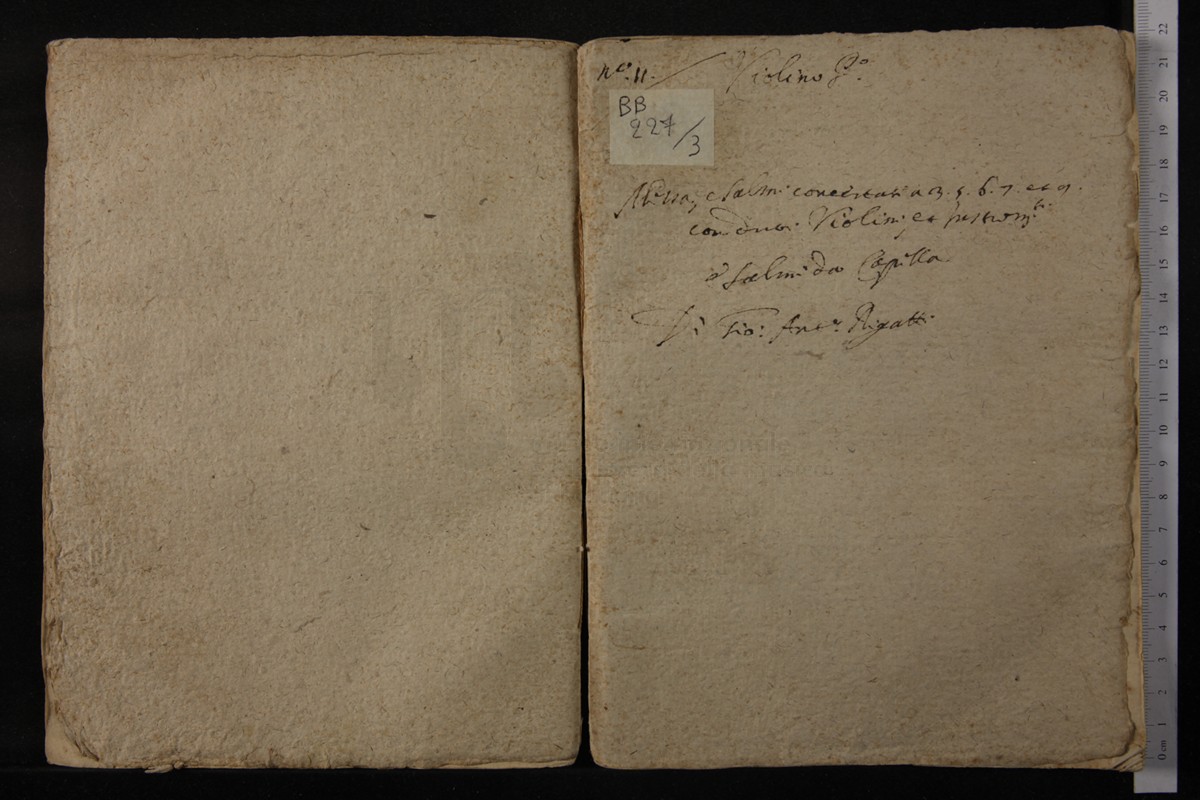 N.º 11.
Violino P.º
BB
227
/3
Messa, e Salmi concertati a 3. 5. 6. 7. et 9.
con duoi Violini, et
e Salmi da Capella
Di Gio: Ant.º Rigatti
22
21
20
19
18
17
16
15
14
13
12
11
10
9
8
7
6
5
4
3
2
1
0 cm